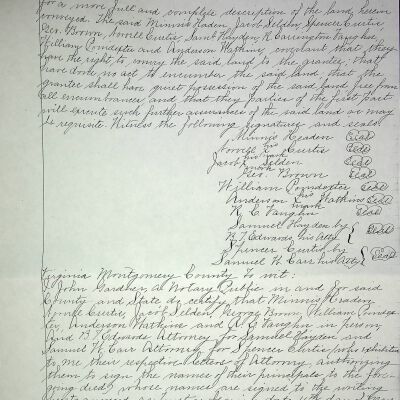 for a more full and complete description of the land, herein
conveyed. The said Minnis Headen, Jacob Selden, Spencer Curtis
Geo. Brown, Norvell Curtis, Saml Hayden, R. Carrington Vaughn,
William Poindexter and Anderson Watkins, covenant that they
have the right to convey the said land to the grantee; that
have done no act to encumber the said land; that the
grantee shall have quiet possession of the said land free from
all encumbrances and that they parties of the first part
will execute such further assurances of the said land as may
be requisite. Witness the following signatures and seals.
Minnis Headen Seal
Norvell his Curtis Seal
mark
Jacob his Selden Seal
mark
Geo. Brown Seal
William Poindexter Seal
Anderson his Watkins Seal
mark
R. C. Vaughn Seal
Samuel Hayden by Seal
B. T. Edwards his Atty
Spencer Curtis by Seal
Samuel H. Carr his Atty
Virginia Montgomery County To wit:
I John Gardner, a Notary Public in and for said
County and State do certify that Minnis Headen
Norvell Curtis, Jacob Selden, George Brown, William Poindex-
ter, Anderson Watkins and R. C. Vaughn in person
and B. T. Edwards Attorney for Samuel Hayden and
Samuel H. Carr Attorney for Spencer Curtis, who exhibited
to me their respective letters of Attorney authorizing
them to sign the names of their principals to the fore
going deed, whose names are signed to the writing